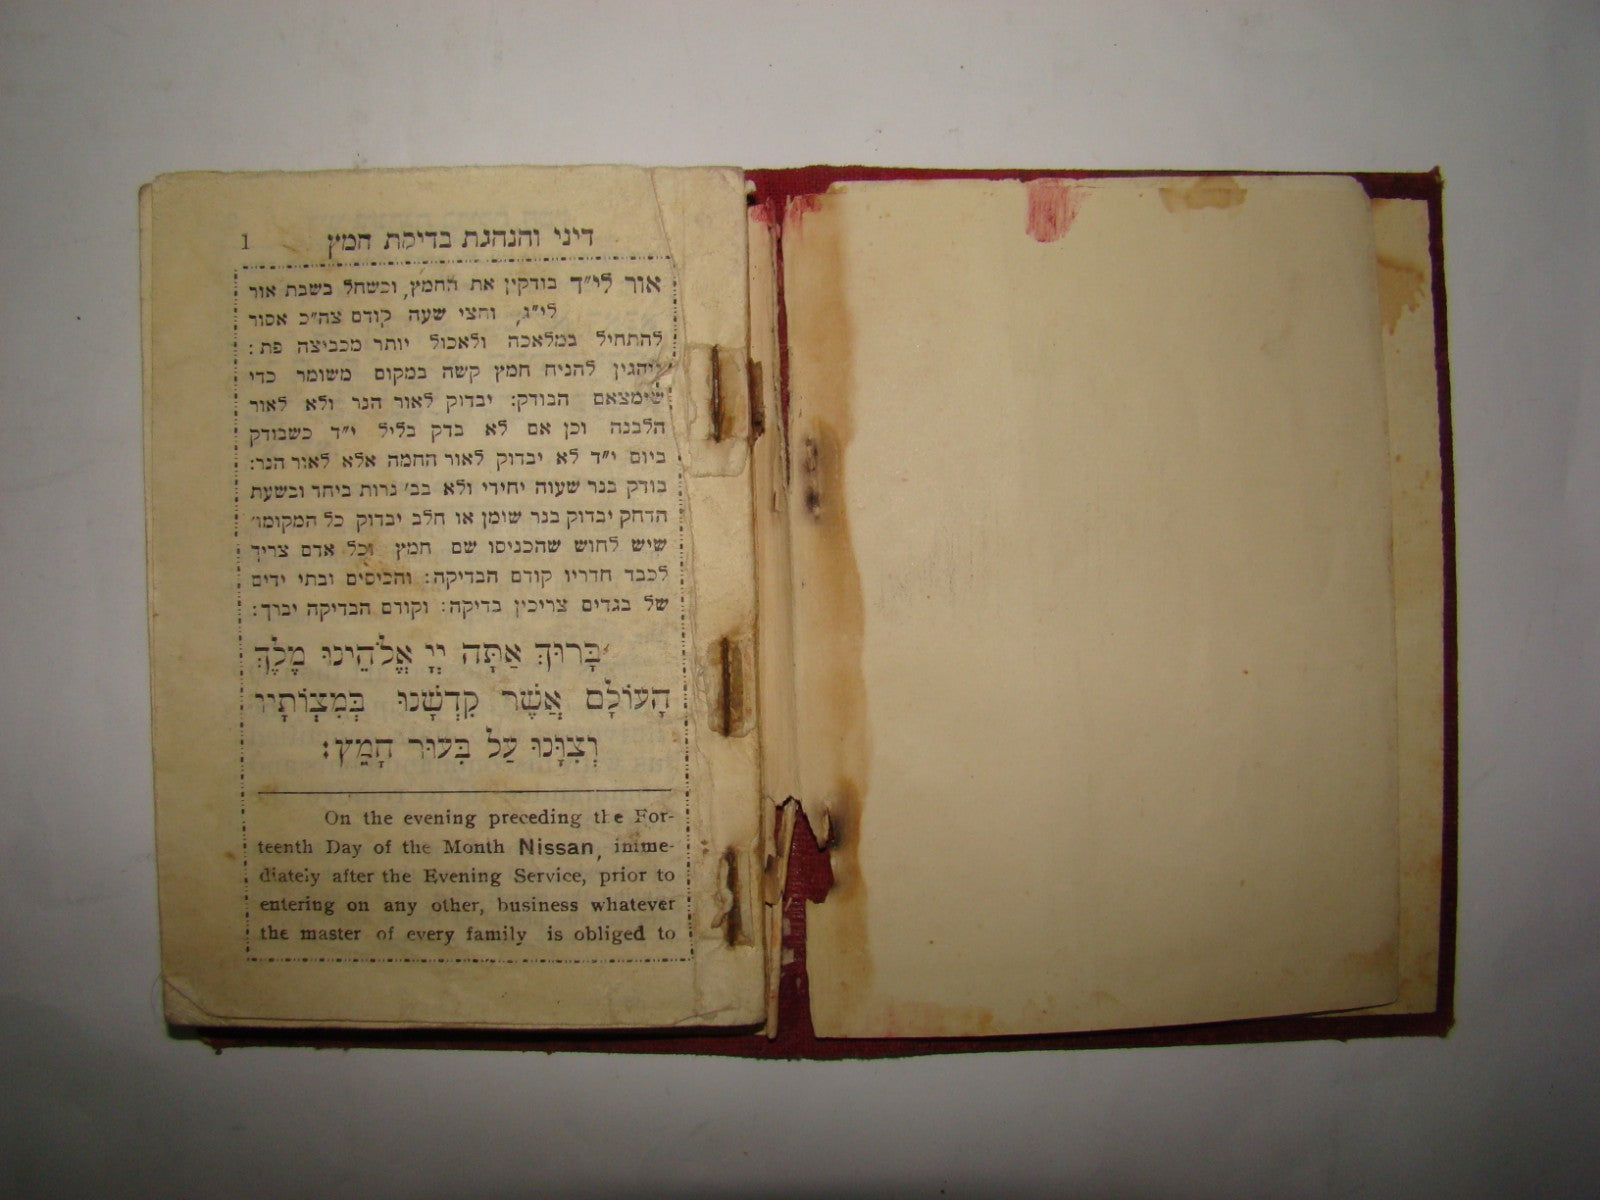 דיני והנהגת בדיקת חמץ 1
אור לי״ד בודקין את החמץ, וכשחל בשבת אור
לי״ג, וחצי שעה קודם צה״כ אסור
להתחיל במלאכה ולאכול יותר מכביצה פת:
ונוהגין להניח חמץ קשה במקום משומר כדי
שימצאם הבודק: יבדוק לאור הנר ולא לאור
הלבנה וכן אם לא בדק בליל י״ד כשבודק
ביום י״ד לא יבדוק לאור החמה אלא לאור הנר:
בודק בנר שעוה יחידי ולא בב׳ נרות ביחד ובשעת
הדחק יבדוק בנר שומן או חלב יבדוק כל המקומו׳
שיש לחוש שהכניסו שם חמץ וכל אדם צריך
לכבד חדריו קודם הבדיקה: והכיסים ובתי ידים
של בגדים צריכין בדיקה: וקודם הבדיקה יברך:
בָּרוּךְ אַתָּה יְיָ אֱלֹהֵינוּ מֶלֶךְ
הָעוֹלָם אֲשֶׁר קִדְשָׁנוּ בְּמִצְוֹתָיו
וְצִוָּנוּ עַל בִּעוּר חָמֵץ:
On the evening preceding the For-
teenth Day of the Month Nissan, imme-
diately after the Evening Service, prior to
entering on any other, business whatever
the master of every family is obliged to